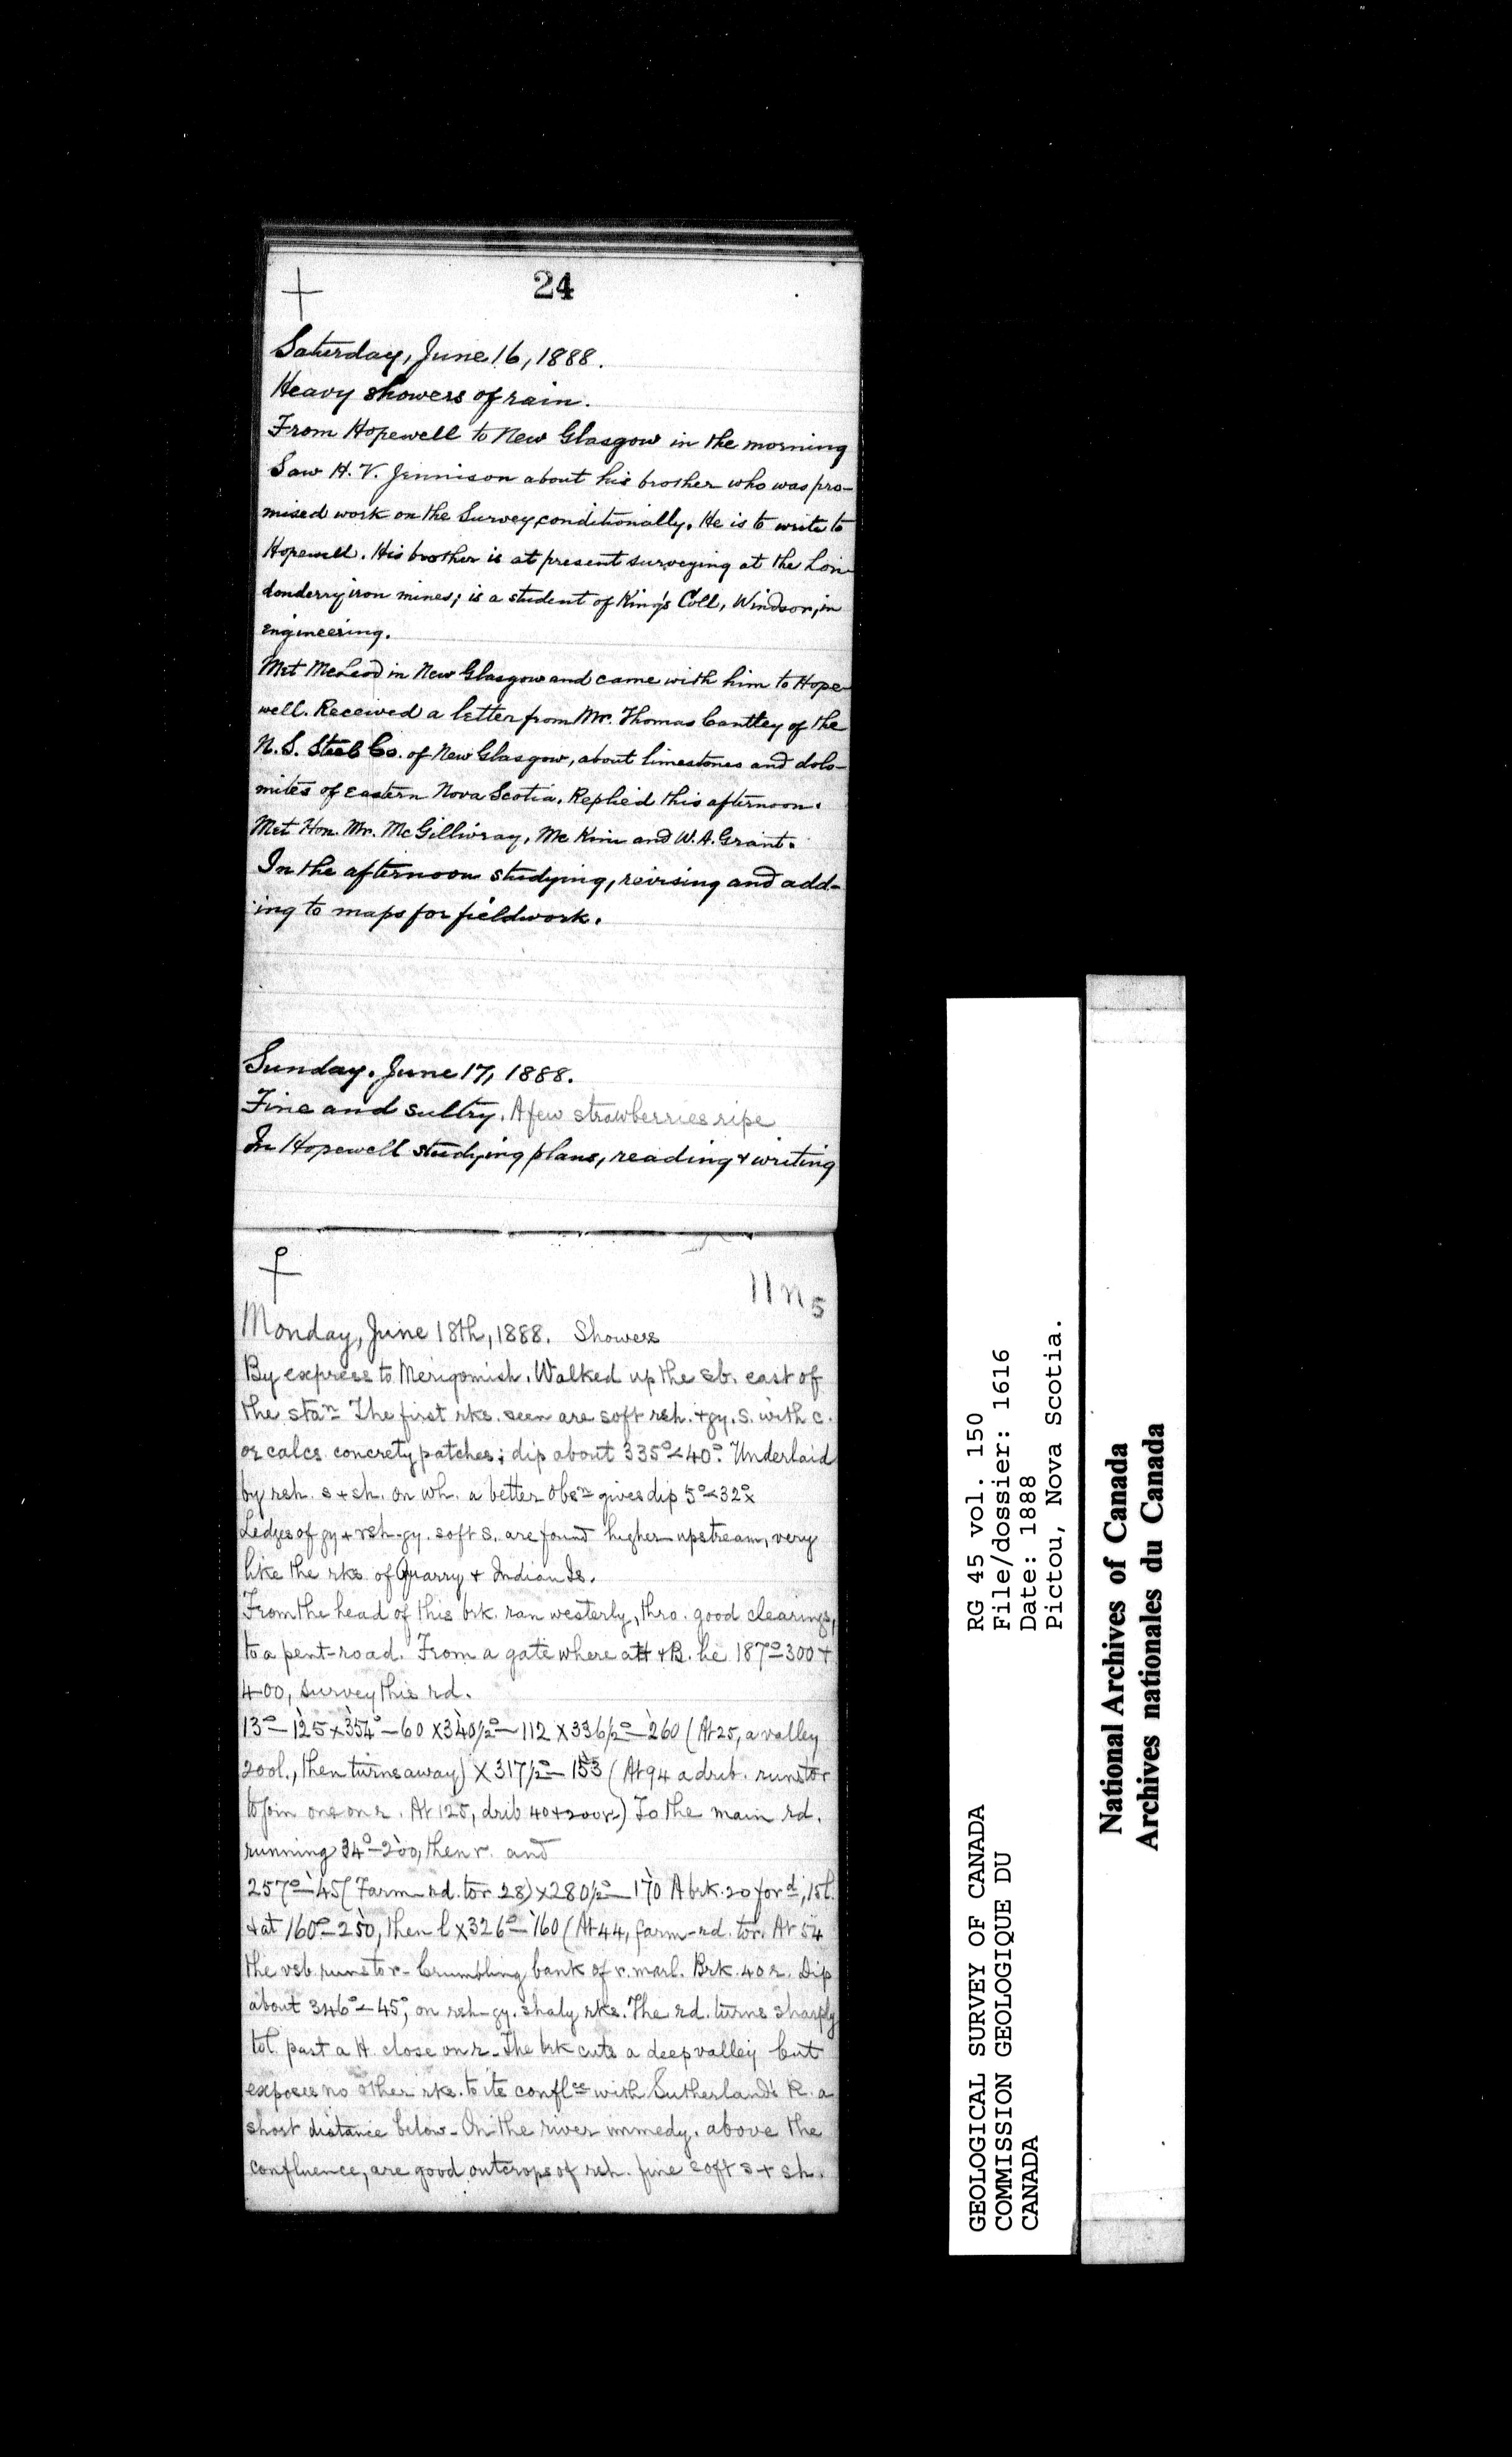 24
Saturday, June 16, 1888.
Heavy showers of rain.
From Hopewell to New Glasgow in the morning
Saw H. V. Jennison about his brother who was pro-
mised work on the Survey, conditionally. He is to write to
Hopewell. His brother is at present surveying at the Lon-
donderry iron mines; is a student of King's Coll, Windsor, in
engineering.
Met McLeod in New Glasgow and came with him to Hope-
well. Received a letter from Mr. Thomas Cantley of the
N. S. Steel Co. of New Glasgow, about limestones and dolo-
mites of eastern Nova Scotia. Replied this afternoon.
Met Hon. Mr. McGillivray, Mc Kim and W. A. Grant.
In the afternoon studying, revising and add-
ing to maps for fieldwork.
Sunday. June 17, 1888.
Fine and sultry. A few strawberries ripe
In Hopewell studying plans, reading & writing
11n5
Monday, June 18th, 1888. Showers
By express to Merigomish. Walked up the sb. east of
the stan The first rks. seen are soft rsh. + gy. s. with c.
or calcs. concrety patches; dip about 335°<40°. Underlaid
by rsh. s + sh. on wh. a better obsn gives dip 5°<32°x
Ledges of gy + rsh-gy. soft s. are found higher upstream, very
like the rks of Quarry + Indian Is.
From the head of this brk. ran westerly, thro. good clearings,
to a pent-road. From a gate where a H + B. lie 187°-300 +
400, survey this rd.
13°-125 x 354°-60 x 340½°-112 x 336½°-260 (At 25, a valley
200l., then turns away) x 317½°-153 (At 94 a drib. runs to r
to join one on r. At 125, drib 40 + 200r.) To the main rd.
running 34°-200, then r. and
257°-45 (Farm-rd. to r 28) x 280½°-170 A brk. 20 for d, 15l.
+ at 160°-250, then l x 326°-160 (At 44, farm-rd. to r. At 54
the vsb. runs to r. Crumbling bank of r. marl. Brk. 40 r. Dip
about 346°<45°, on rsh-gy. shaly rks. The rd. turns sharply
to l. past a H. close on r. The brk cuts a deep valley but
exposes no other rks. to its conflce with Sutherland's R. a
short distance below. On the river immedy. above the
confluence, are good outcrops of rsh. fine soft s + sh.
GEOLOGICAL SURVEY OF CANADA
COMMISSION GEOLOGIQUE DU
CANADA
RG 45 vol. 150
File/dossier: 1616
Date: 1888
Pictou, Nova Scotia.
National Archives of Canada
Archives nationales du Canada